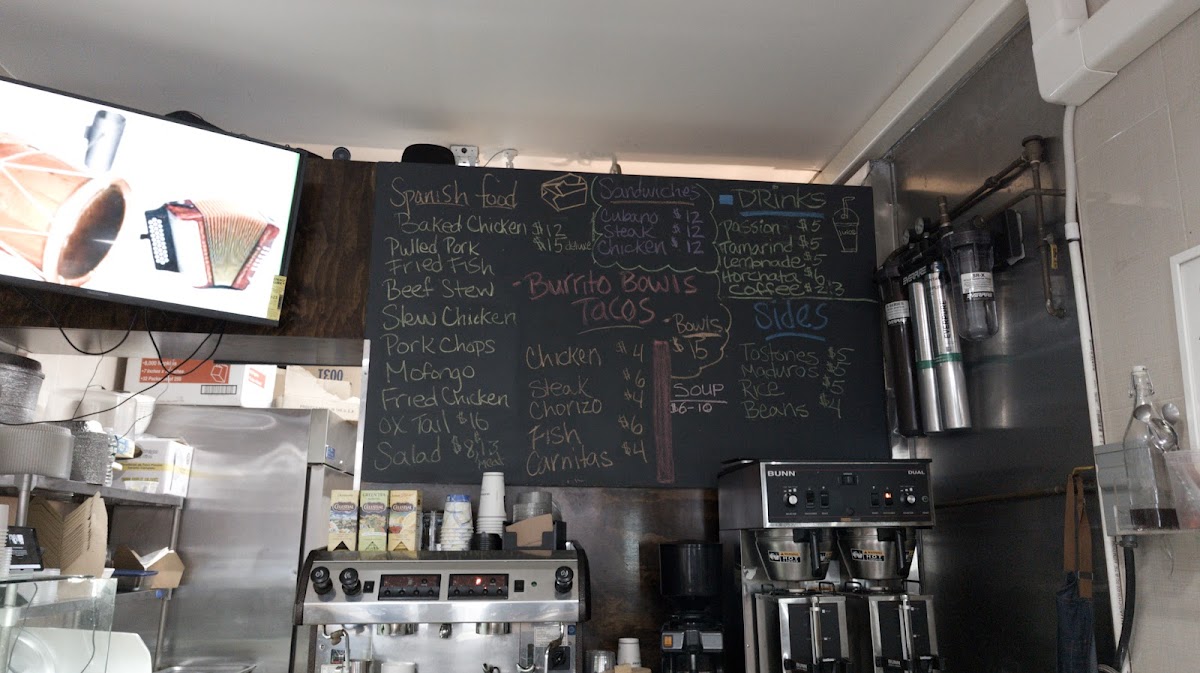 Spanish food
Baked Chicken $12
Pulled Pork $15 deluxe
Fried Fish
Beef Stew
Stew Chicken
Pork Chops
Mofongo
Fried Chicken
Ox Tail $16
Salad $8,
Sandwiches
Cubano $12
Steak $12
Chicken $12
Burrito Bowls
Tacos
Bowls
$15
Chicken $4
Steak $6
Chorizo $4
Fish $6
Carnitas $4
Soup
$6-10
Drinks
Passion $5
Tamarind $5
Lemonade $5
Horchata $6
Coffee $2.
Sides
Tostones $5
Maduros $5
Rice $5
Beans $4
BUNN
DUAL
EVERPURE